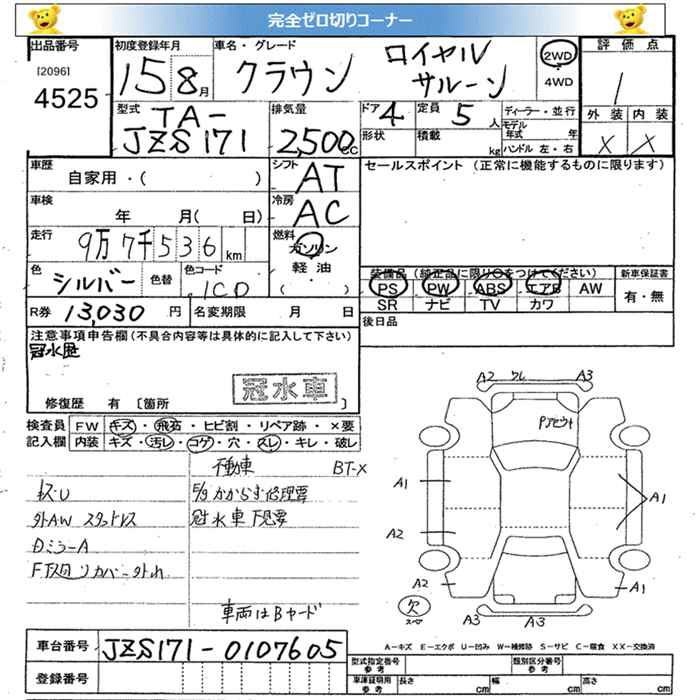 完全ゼロ切りコーナー
出品番号
[2096]
4525
初度登録年月
15 8月
車名・グレード
クラウン
ロイヤル
サルーン
2WD
4WD
評価点
1
外装 内装
X X
型式
TA-
JZS171
排気量
2,500cc
ドア 4
形状
定員 5人
積載 kg
ディーラー・並行
モデル年式 年
ハンドル 左・右
車歴
自家用・( )
シフト
AT
車検
年 月( 日)
冷房
AC
走行
9万7千536km
燃料
ガソリン
軽油
( )
色
シルバー
色替
色コード
1C0
R券 13,030円
名変期限 月 日
セールスポイント (正常に機能するものに限ります)
装備品 (純正品に限り○をつけてください)
PS PW ABS エアB AW
SR ナビ TV カワ
新車保証書
有・無
後日品
注意事項申告欄(不具合内容等は具体的に記入して下さい)
冠水歴
冠水車
修復歴 有 [箇所 ]
検査員記入欄
FW キズ・飛石・ヒビ割・リペア跡・×要
内装 キズ・汚レ・コゲ・穴・スレ・キレ・破レ
不動車 BT-X
キズU
外AW スタットレス
DミラーA
リカバー外れ
冠水車下見要
車両はBヤード
A2 ワレ A3
A1
A1
A2
A2
A1
A3
A3
欠
車台番号 JZS171-0107605
登録番号
A-キズ E-エクボ U-凹み W-補修跡 S-サビ C-腐食 XX-交換済
型式指定番号
参考
類別区分番号
参考
車庫証明用
参考
長さ cm
幅 cm
高さ cm